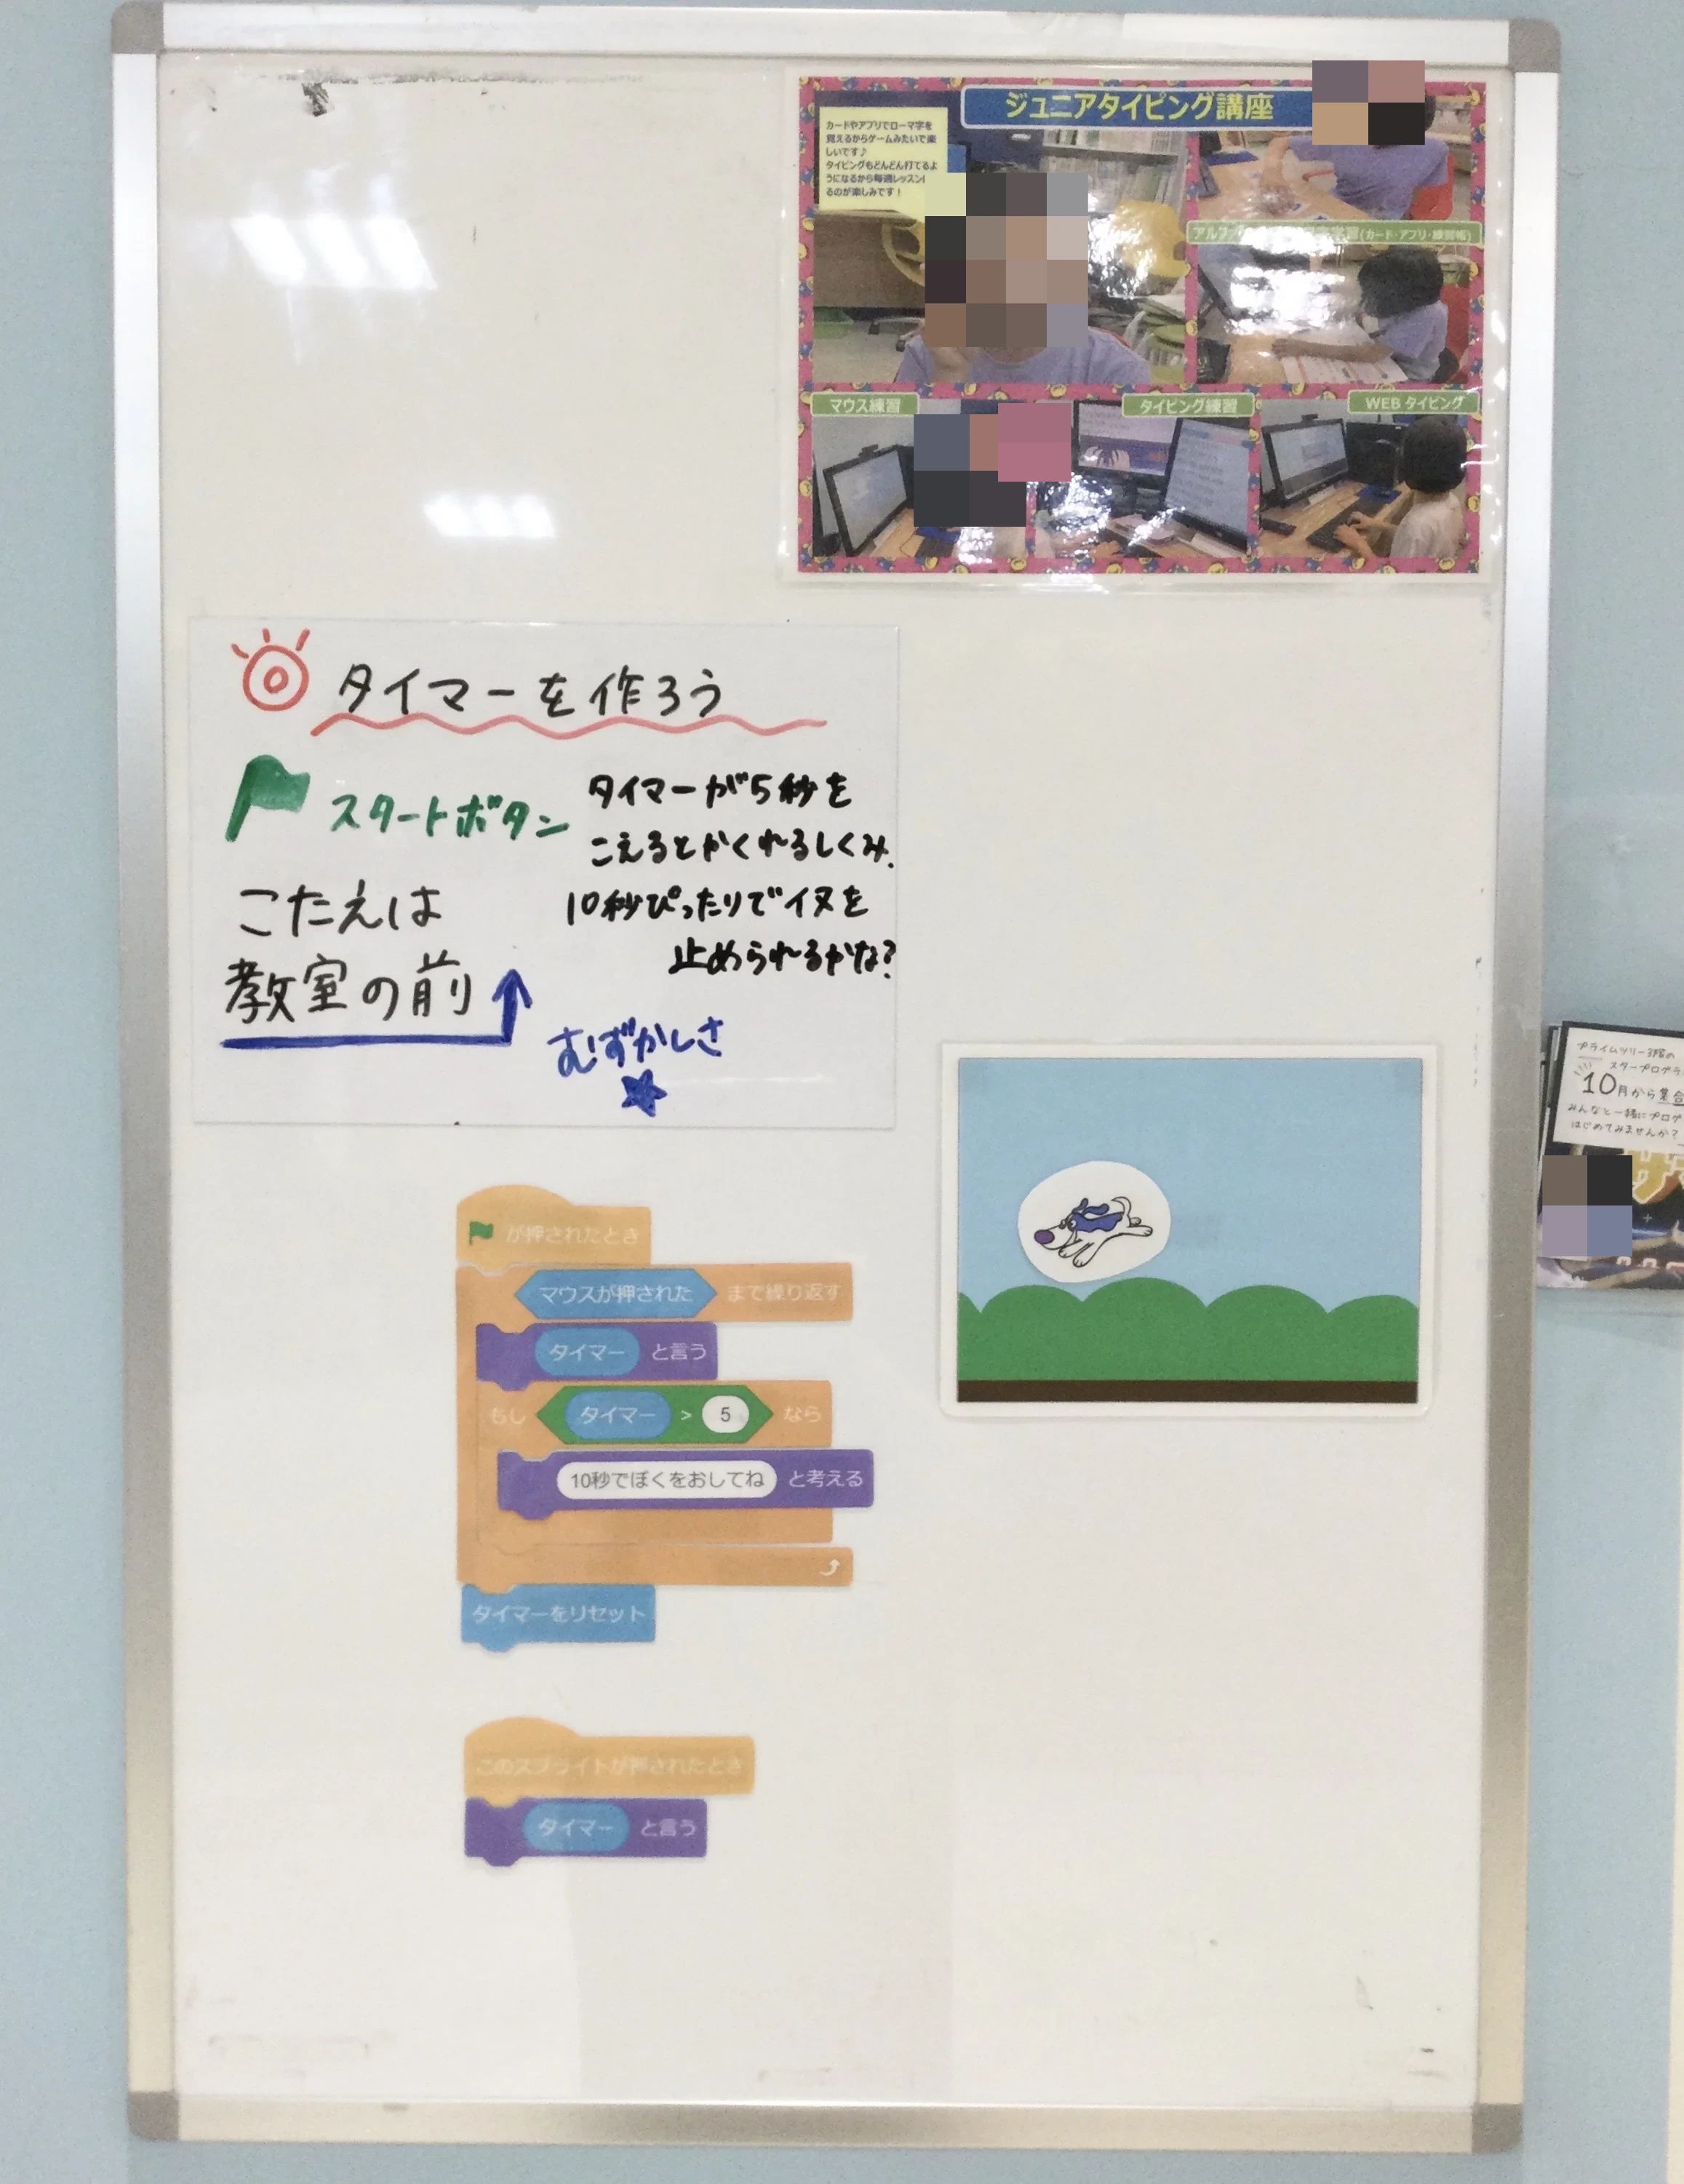 ジュニアタイピング講座
カードやアプリでローマ字を
覚えるからゲームみたいで楽
しいです♪
タイピングもどんどん打てるよ
うになるから毎週レッスン
るのが楽しみです！
(カード・アプリ・練習帳)
マウス練習
タイピング練習
WEB タイピング
タイマーを作ろう
スタートボタン
タイマーが5秒を
こえるとかくれるしくみ.
10秒ぴったりでイヌを
止められるかな?
こたえは
教室の前
むずかしさ
が押されたとき
マウスが押された まで繰り返す
タイマー と言う
もし タイマー > 5 なら
10秒でぼくをおしてね と考える
タイマーをリセット
このスプライトが押されたとき
タイマー と言う
プライムツリー3階の
スタープログラ
10月から集合
みんなと一緒にプログ
はじめてみませんか?